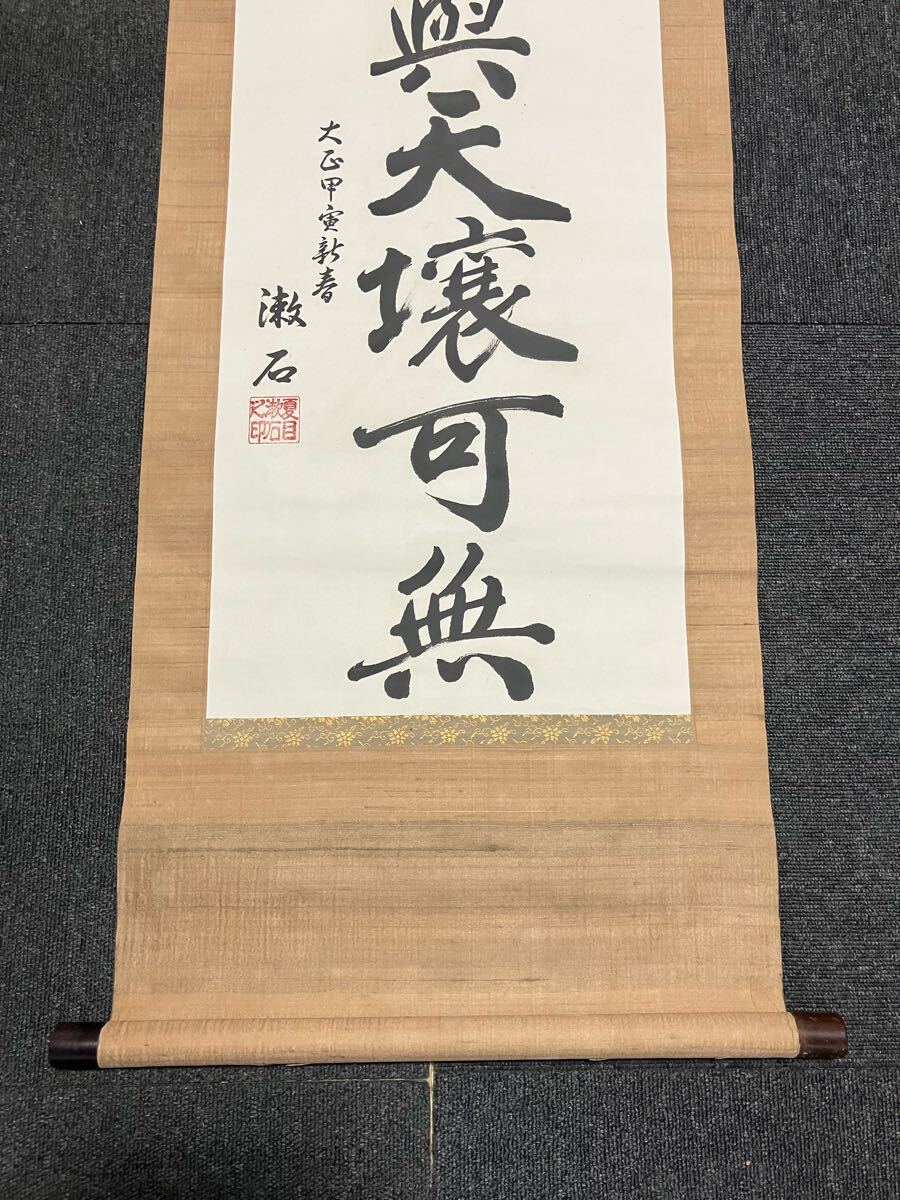 與天壤可無
大正甲寅新春
漱石
夏目
漱石
之印